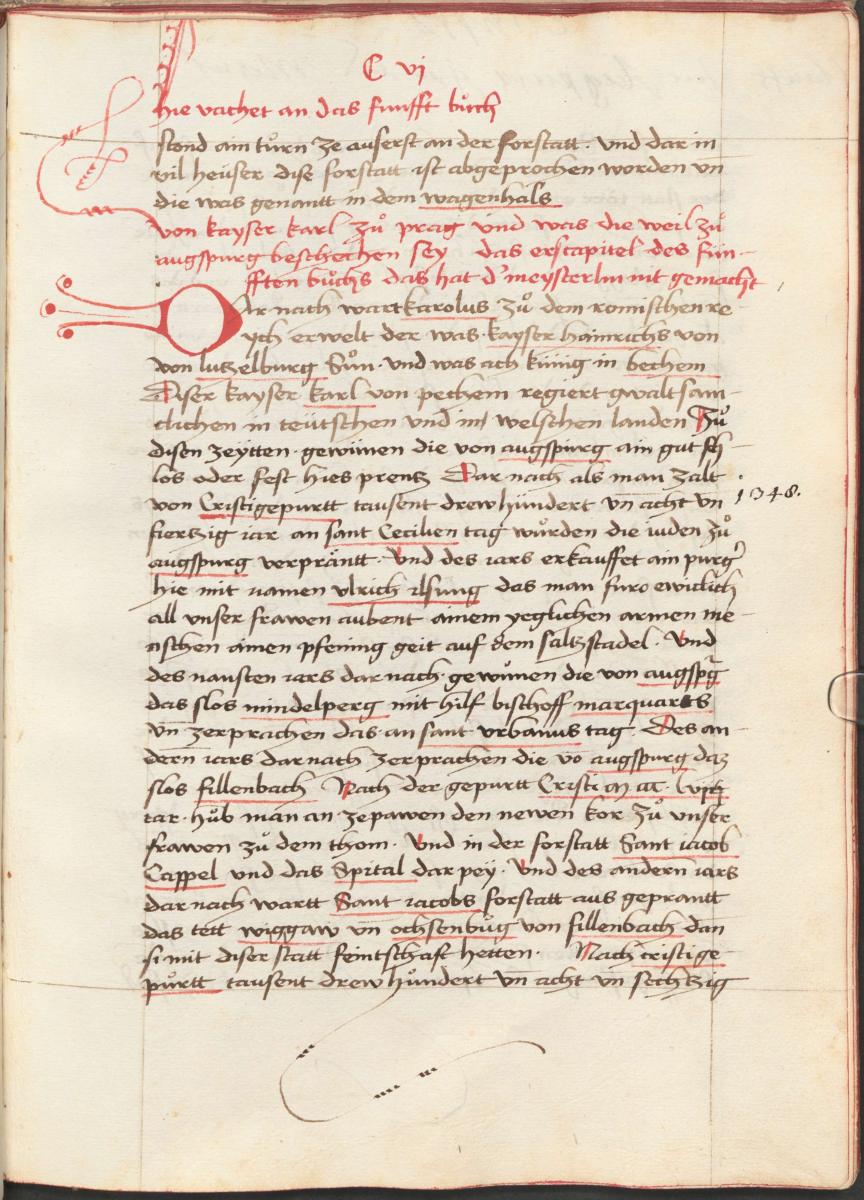 C vj
hie vachet an das funfft bůch
stond ain tůrn ze auserst an der forstatt. vnd dar in
vil heüser dise forstatt ist abgeprochen worden vn̄
die was genantt in dem wagenhals
von kayser karl zů prag vnd was die weil zů
augspurg beschechen sey das erst capitel des fün-
fften bůchs das hat d' meysterlin nit gemacht
Dar nach wart karolus zů dem romischen re-
ych erwelt der was kayser hainrichs von
von lutzelburg Sůn. vnd was ach künig in bechem
Diser kayser karl von pechem regiert gwaltsam-
clichen in teütschen vnd in welschen landen Zů
disen zeytten. gewunen die von augspurg ain gut sch-
los oder fest hies prentz Dar nach als man zalt
von Cristi gepurtt tausent drew hundert vn̄ acht vn̄ 1348.
fiertzig iar an sant Cecilien tag wůrden die iuden zů
augspurg verpräntt. Vnd des iars erkauffet ain purg'
hie mit namen vlrich ilsung das man furo ewiclich
all vnser frawen aubent ainem yeglichen armen me-
nschen ainen pfening geit auf dem saltzstadel. Vnd
des nausten iars dar nach gewunen die von augspg
das slos mindelperg mit hilf bischoff marquarts
vn̄ zerprachen das an sant vrbanus tag. Des an-
dern iars dar nach zerprachen die vō augspurg daz
slos fillenbach Nach der gepurtt Cristi
iar. hůb man an ze pawen den newen kor zů vnser
frawen zů dem thom. Vnd in der forstatt Sant iacob
Cappel vnd das Spital dar pey. Vnd des andern iars
dar nach wartt Sant iacobs forstatt aus geprantt
das tett wiggaw vn̄ ochsenbůg von fillenbach dan
si mit diser statt feintschaft hetten. Nach cristi ge-
půrtt tausent drew hůndert vn̄ acht vn̄ sechtzig